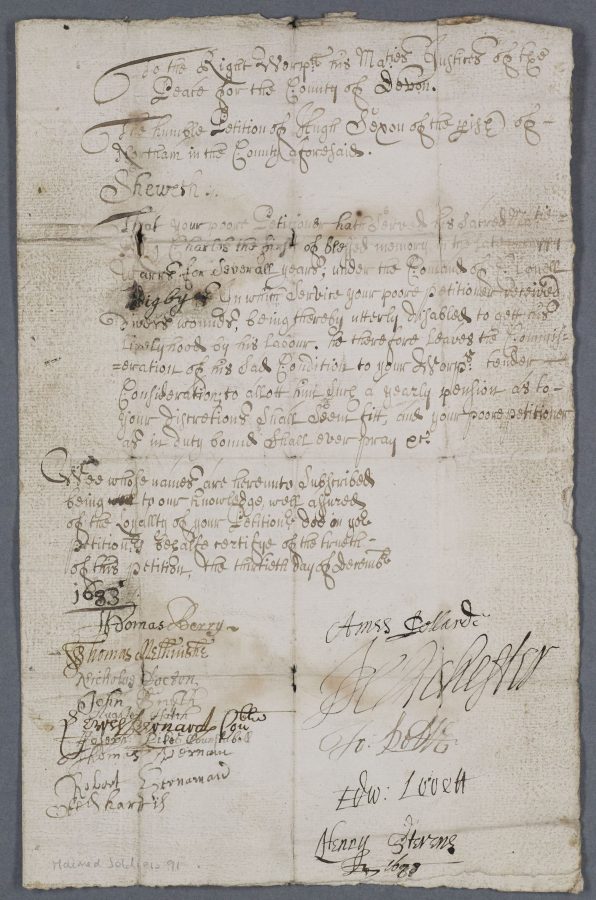 To the Right Worpll his Maties Justices of the
Peace for the County of Devon.
The humble Petition of Hugh Sexon of the pish of
Northam in the County aforesaid.
Sheweth.
That your poore Petitioner hath served his Sacred
Charles the first of blessed memory in the late
Warrs for severall years, under the Comand of Collonell
Digby In which Service your poore Petitioner received
Divers wounds, being thereby utterly disabled to gett his
livelyhood by his Labour. he therefore leaves the Commis=
=eration of his sad Condition to your Worps tender
Consideration, to allott him such a yearly pension as to
your discretions shall seem fitt, and your poore petitioner
as in duty bound shall ever pray etc
Wee whose names are hereunto Subscribed
being to our knowledge, well assured
of the Loyallty of your Petitioner doe in yor
Petitioners behalfe certifye of the trueth
of this petition, the thirtieth day of decembr
1683
Thomas Berry
Thomas
Nicholas
John Smyth
Bernard
Thomas
Robert
Richard
Amos Pollard
Jo:
Edw: Lovett
Henry Stevens
Maimed Soldiers 91